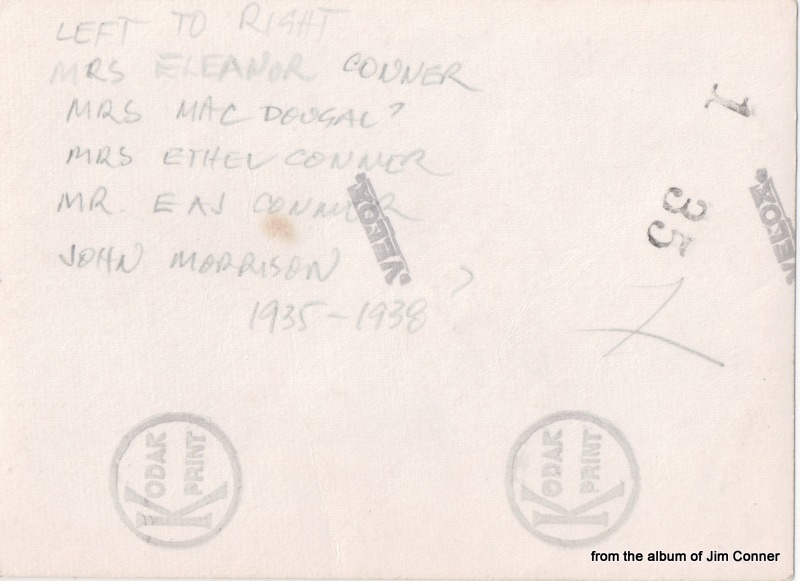 LEFT TO RIGHT
MRS ELEANOR CONNER
MRS MAC DOUGAL?
MRS ETHEL CONNER
MR. EAJ CONNER
JOHN MORRISON
?
1935-1938
1
35
VELOX
VELOX
KODAK PRINT
KODAK PRINT
from the album of Jim Conner